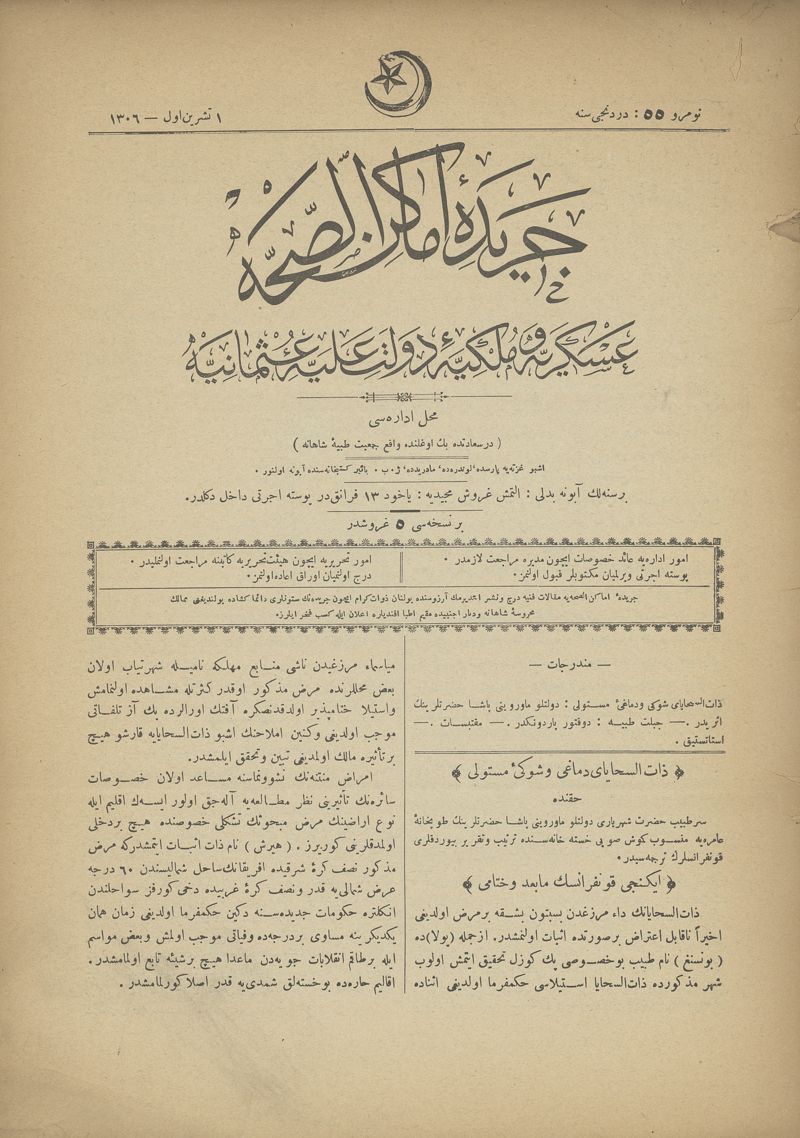 نومرو ۵۵ : دردنجی سنه
۱ تشرین اول — ۱۳۰۶
جریدهٔ اماکن الصحه
عسکریه و ملکیهٔ دولت علیهٔ عثمانیه
محل اداره‌سی
( درسعادتده بك اوغلنده واقع جمعیت طبیهٔ شاهانه )
اشبو غزته‌یه پارسده، لوندره‌ده، مادریدده، ژ . ب . بائیر کتبخانه‌سنده آبونه اولنور .
برسنه‌لك آبونه بدلی : التمش غروش مجیدیه : یاخود ۱۳ فرانق‌در پوسته اجرتی داخل دکلدر.
بر نسخه‌سی ۵ غروشدر
امور اداره‌یه عائد خصوصات ایچون مدیره مراجعت لازمدر .
پوسته اجرتی ویرلمیان مکتوبلر قبول اولنمز.
امور تحریریه ایچون هیئت تحریریه کاتبنه مراجعت اولنملیدر .
درج اولنمیان اوراق اعاده اولنمز.
جریدهٔ اماکن الصحه‌یه مقالات فنیه درج ونشر ایتدیرمك آرزوسنده بولنان ذوات کرام ایچون جریده‌نك ستونلری دائما کشاده بولندیغنی ممالك
محروسهٔ شاهانه ودیار اجنبیده مقیم اطبا افندیلره اعلان ایله کسب فخر ایلرز.
— مندرجات —
ذات‌السحایای شوکی ودماغیٔ مستولی : دولتلو ماوروینی پاشا حضرتلرینك
اثریدر. — جبلت طبیبه : دوقتور یاردونکدر. — مقتبسات. —
استاتستیق .
﴿ ذات السحایای دماغی و شوکیٔ مستولی ﴾
حقنده
سرطبیب حضرت شهریاری دولتلو ماوروینی پاشا حضرتلرینك طوبخانهٔ
عامره‌یه منسوب کموش صویی خسته خانه‌سنده ترتیب وتقریر بیوردقلری
قونفرانسلرك ترجمه‌سیدر.
﴿ ایکنجی قونفرانسك مابعد وختامی ﴾
ذات‌السحایانك داء مرزغدن بسبتون بشقه برمرض اولدیغی
اخیراً ناقابل اعتراض برصورتده اثبات اولنمشدر. ازجمله (پولا)ده
( یونسنغ ) نام طبیب بوخصوصی پك کوزل تحقیق ایتمش اولوب
شهر مذکورده ذات‌السحایا استیلاسی حکمفرما اولدیغی اثناده
میاسماء مرزغیدن ناشی منابع مهلکه نامیله شهرتیاب اولان
بعض محللرنده مرض مذکور اوقدر کثرتله مشاهده اولنمامش
واستیلا ختامپذیر اولدقدنصکره آفتك اورالرده پك آز تلفاتی
موجب اولدیغی وکنین املاحنك اشبو ذات‌السحایایه قارشو هیچ
برتأثیره مالك اولمدیغی تبین وتحقق ایلمشدر.
امراض منتنه‌نك نشوونماسنه مساعد اولان خصوصات
سائره‌نك تأثیرینی نظر مطالعه‌یه آله‌جق اولور ایسه‌ك اقلیم ایله
نوع اراضینك مرض مبحوثك تشکلی خصوصنده هیچ بردخلی
اولمدقلرینی کوریرز . ( هیرش ) نام ذات اثبات ایتمشدرکه مرض
مذکور نصف کرهٔ شرقیده افریقانك ساحل شمالیسندن ۶۰ درجه
عرض شمالی‌یه قدر ونصف کرهٔ غربیده دخی کورفز سواحلندن
انکلتره حکومات جدیده‌سنه دکین حکمفرما اولدیغی زمان همان
یکدیکرینه مساوی بردرجه‌ده وفیاتی موجب اولمش وبعض مواسم
ایله برطاقم انقلابات جویه‌دن ماعدا هیچ برشیئه تابع اولمامشدر.
اقالیم حاره‌ده بوخسته‌لق شمدی‌یه قدر اصلا کورلمامشدر .